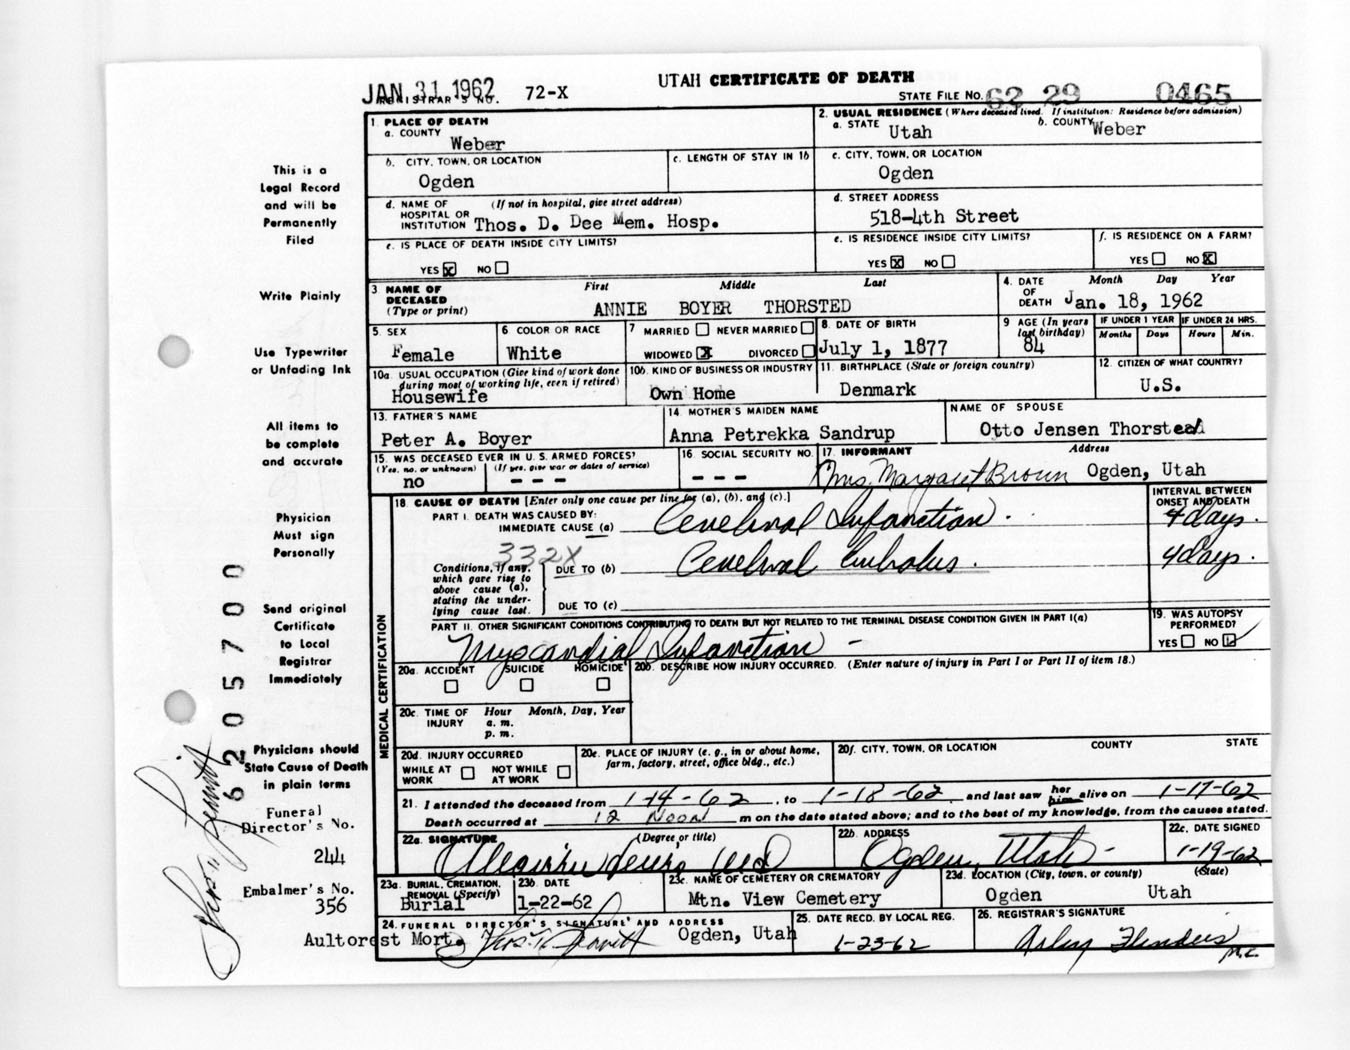 JAN 31 1962
REGISTRAR'S NO. 72-X
UTAH CERTIFICATE OF DEATH
STATE FILE NO. 62 29 0465
This is a
Legal Record
and will be
Permanently
Filed
Write Plainly
Use Typewriter
or Unfading Ink
All items to
be complete
and accurate
Physician
Must sign
Personally
Send original
Certificate
to Local
Registrar
Immediately
Physicians should
State Cause of Death
in plain terms
Funeral
Director's No.
244
Embalmer's No.
356
6205700
1. PLACE OF DEATH
a. COUNTY
Weber
2. USUAL RESIDENCE (Where deceased lived. If institution: Residence before admission)
a. STATE Utah b. COUNTY Weber
b. CITY, TOWN, OR LOCATION
Ogden
c. LENGTH OF STAY IN 1b
c. CITY, TOWN, OR LOCATION
Ogden
d. NAME OF HOSPITAL OR INSTITUTION (If not in hospital, give street address)
Thos. D. Dee Mem. Hosp.
d. STREET ADDRESS
518-4th Street
e. IS PLACE OF DEATH INSIDE CITY LIMITS?
YES X NO
e. IS RESIDENCE INSIDE CITY LIMITS?
YES X NO
f. IS RESIDENCE ON A FARM?
YES NO X
3. NAME OF DECEASED (Type or print)
First Middle Last
ANNIE BOYER THORSTED
4. DATE OF DEATH Month Day Year
Jan. 18, 1962
5. SEX
Female
6 COLOR OR RACE
White
7 MARRIED NEVER MARRIED
WIDOWED X DIVORCED
8. DATE OF BIRTH
July 1, 1877
9 AGE (In years last birthday)
84
IF UNDER 1 YEAR
Months Days
IF UNDER 24 HRS.
Hours Min.
10a. USUAL OCCUPATION (Give kind of work done during most of working life, even if retired)
Housewife
10b. KIND OF BUSINESS OR INDUSTRY
Own Home
11. BIRTHPLACE (State or foreign country)
Denmark
12. CITIZEN OF WHAT COUNTRY?
U.S.
13. FATHER'S NAME
Peter A. Boyer
14. MOTHER'S MAIDEN NAME
Anna Petrekka Sandrup
NAME OF SPOUSE
Otto Jensen Thorsted
15. WAS DECEASED EVER IN U. S. ARMED FORCES?
(Yes, no, or unknown) (If yes, give war or dates of service)
no - - -
16 SOCIAL SECURITY NO.
- - -
17. INFORMANT Address
Mrs. Margaret Brown Ogden, Utah
MEDICAL CERTIFICATION
18. CAUSE OF DEATH [Enter only one cause per line for (a), (b), and (c).]
INTERVAL BETWEEN ONSET AND DEATH
PART I. DEATH WAS CAUSED BY:
IMMEDIATE CAUSE (a) Cerebral Infarction. 4 days.
332X
Conditions, if any, which gave rise to above cause (a), stating the underlying cause last.
DUE TO (b) Cerebral Embolus. 4 days.
DUE TO (c)
PART II. OTHER SIGNIFICANT CONDITIONS CONTRIBUTING TO DEATH BUT NOT RELATED TO THE TERMINAL DISEASE CONDITION GIVEN IN PART I(a)
Myocardial Infarction -
19. WAS AUTOPSY PERFORMED?
YES NO
20a. ACCIDENT SUICIDE HOMICIDE
20b. DESCRIBE HOW INJURY OCCURRED. (Enter nature of injury in Part I or Part II of item 18.)
20c. TIME OF INJURY Hour Month, Day, Year
a. m.
p. m.
20d. INJURY OCCURRED
WHILE AT WORK NOT WHILE AT WORK
20e. PLACE OF INJURY (e. g., in or about home, farm, factory, street, office bldg., etc.)
20f. CITY, TOWN, OR LOCATION COUNTY STATE
21. I attended the deceased from 1-14-62, to 1-18-62 and last saw her him alive on 1-17-62
Death occurred at 12 Noon m on the date stated above; and to the best of my knowledge, from the causes stated.
22a. SIGNATURE (Degree or title)
22b. ADDRESS
Ogden, Utah -
22c. DATE SIGNED
1-19-62
23a. BURIAL, CREMATION, REMOVAL (Specify)
Burial
23b. DATE
1-22-62
23c. NAME OF CEMETERY OR CREMATORY
Mtn. View Cemetery
23d. LOCATION (City, town, or county) (State)
Ogden Utah
24. FUNERAL DIRECTOR'S SIGNATURE AND ADDRESS
Aultorest Mort. Ogden, Utah
25. DATE RECD. BY LOCAL REG.
1-23-62
26. REGISTRAR'S SIGNATURE